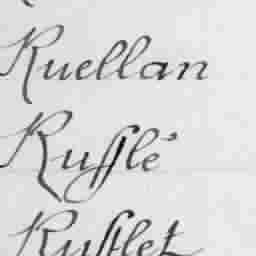 Ruellan
Rufflé
Rufflet